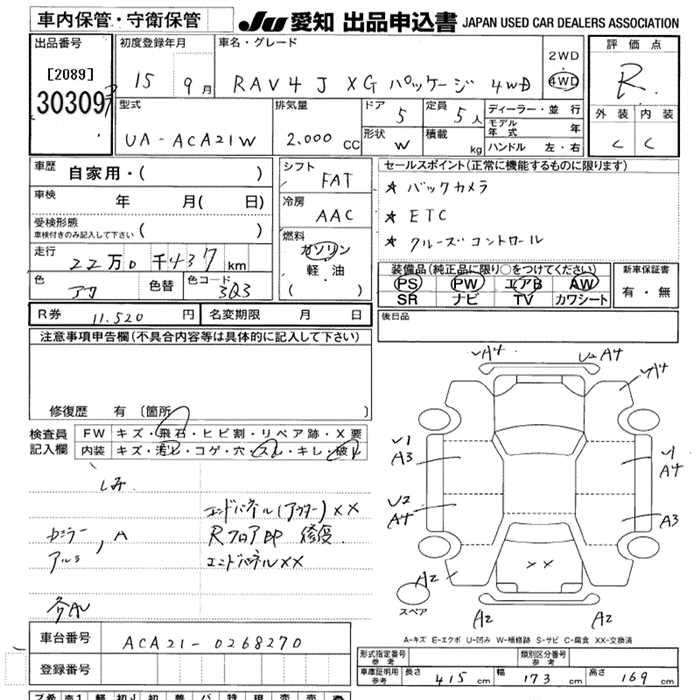 車内保管・守衛保管
JU 愛知 出品申込書 JAPAN USED CAR DEALERS ASSOCIATION
出品番号
[2089]
30309
初度登録年月
15 9月
車名・グレード
RAV4 J XGパッケージ 4WD
2WD
4WD
評価点
R
外装 内装
C C
型式
UA-ACA21W
排気量
2.000 CC
ドア 5
形状 W
定員 5人
積載 kg
ディーラー・並行
モデル年式 年
ハンドル 左・右
車歴 自家用・( )
車検 年 月( 日)
受検形態
車検付きのみ記入して下さい ( )
走行 22万0千437km
色 アカ 色替 色コード 3Q3
シフト
FAT
冷房
AAC
燃料
ガソリン
軽・油
( )
セールスポイント(正常に機能するものに限ります)
★ バックカメラ
★ ETC
★ クルーズコントロール
装備品(純正品に限り○をつけてください)
PS PW エアB AW
SR ナビ TV カワシート
新車保証書
有・無
R券 11.520 円 名変期限 月 日
後日品
注意事項申告欄(不具合内容等は具体的に記入して下さい)
修復歴 有 〔箇所 〕
検査員記入欄
FW キズ・飛石・ヒビ割・リペア跡・X要
内装 キズ・汚レ・コゲ・穴・スレ・キレ・破レ
シミ
エンドパネル(アウター)XX
Rフロア凹 修復
エンドパネルXX
アルミ , A
各AU
A4
U2 A4
A4
U1
A3
U1
A4
U2
A4
A3
A2
XX
A2
A2
A2
スペア
A-キズ E-エクボ U-凹み W-補修跡 S-サビ C-腐食 XX-交換済
車台番号 ACA21-0268270
登録番号
形式指定番号 参考
類別区分番号 参考
車庫証明用 参考 長さ 415cm 幅 173cm 高さ 169cm